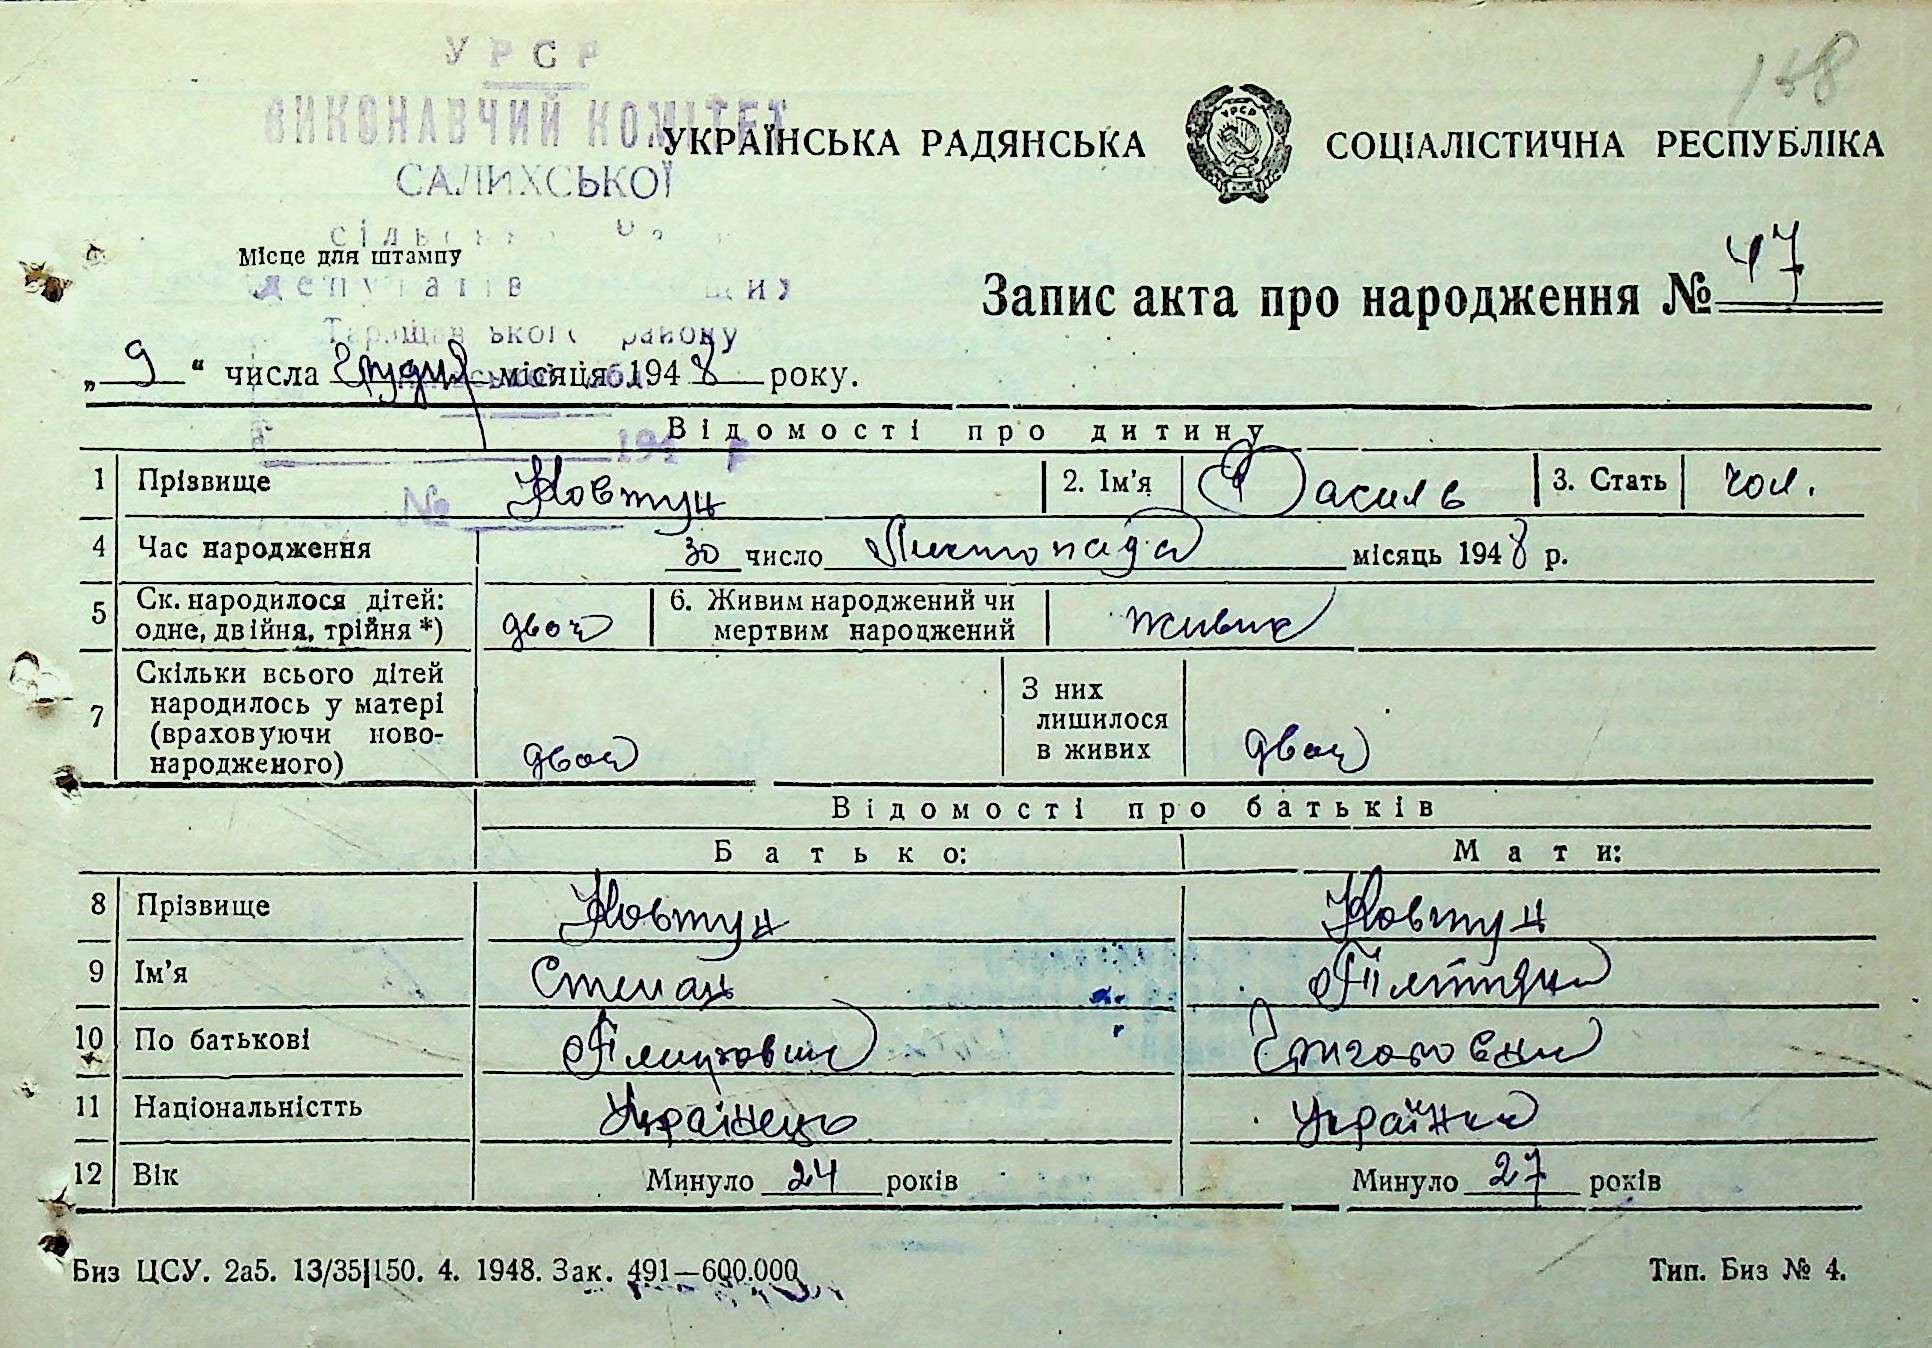 158
УРСР
ВИКОНАВЧИЙ КОМІТЕТ
САЛИХСЬКОЇ
УКРАЇНСЬКА РАДЯНСЬКА СОЦІАЛІСТИЧНА РЕСПУБЛІКА
Місце для штампу
депутатів
Таращанського району
Запис акта про народження № 47
„ 9 “ числа грудня місяця 1948 року.
Відомості про дитину
№
1 Прізвище Ковтун 2. Ім'я Василь 3. Стать чол.
4 Час народження 30 число Листопада місяць 1948 р.
5 Ск. народилося дітей: одне, двійня, трійня *) двоє 6. Живим народжений чи мертвим народжений живих
7 Скільки всього дітей народилось у матері (враховуючи ново- народженого) двоє З них лишилося в живих двоє
Відомості про батьків
Батько: Мати:
8 Прізвище Ковтун Ковтун
9 Ім'я Степан
10 По батькові Григоровна
11 Національністть Українець Українка
12 Вік Минуло 24 років Минуло 27 років
Биз ЦСУ. 2а5. 13/35|150. 4. 1948. Зак. 491—600.000 Тип. Биз № 4.